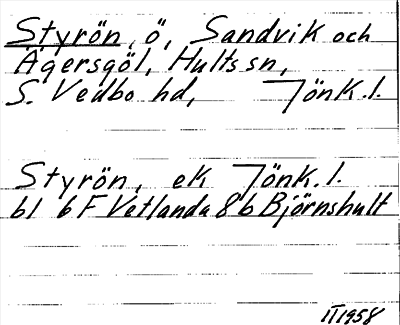 Styrön, ö, Sandvik och
Ägersgöl, Hults sn,
S. Vedbo hd, Jönk.l.
Styrön, ek Jönk.l.
bl 6F Vetlanda 8b Björnshult
II 1958